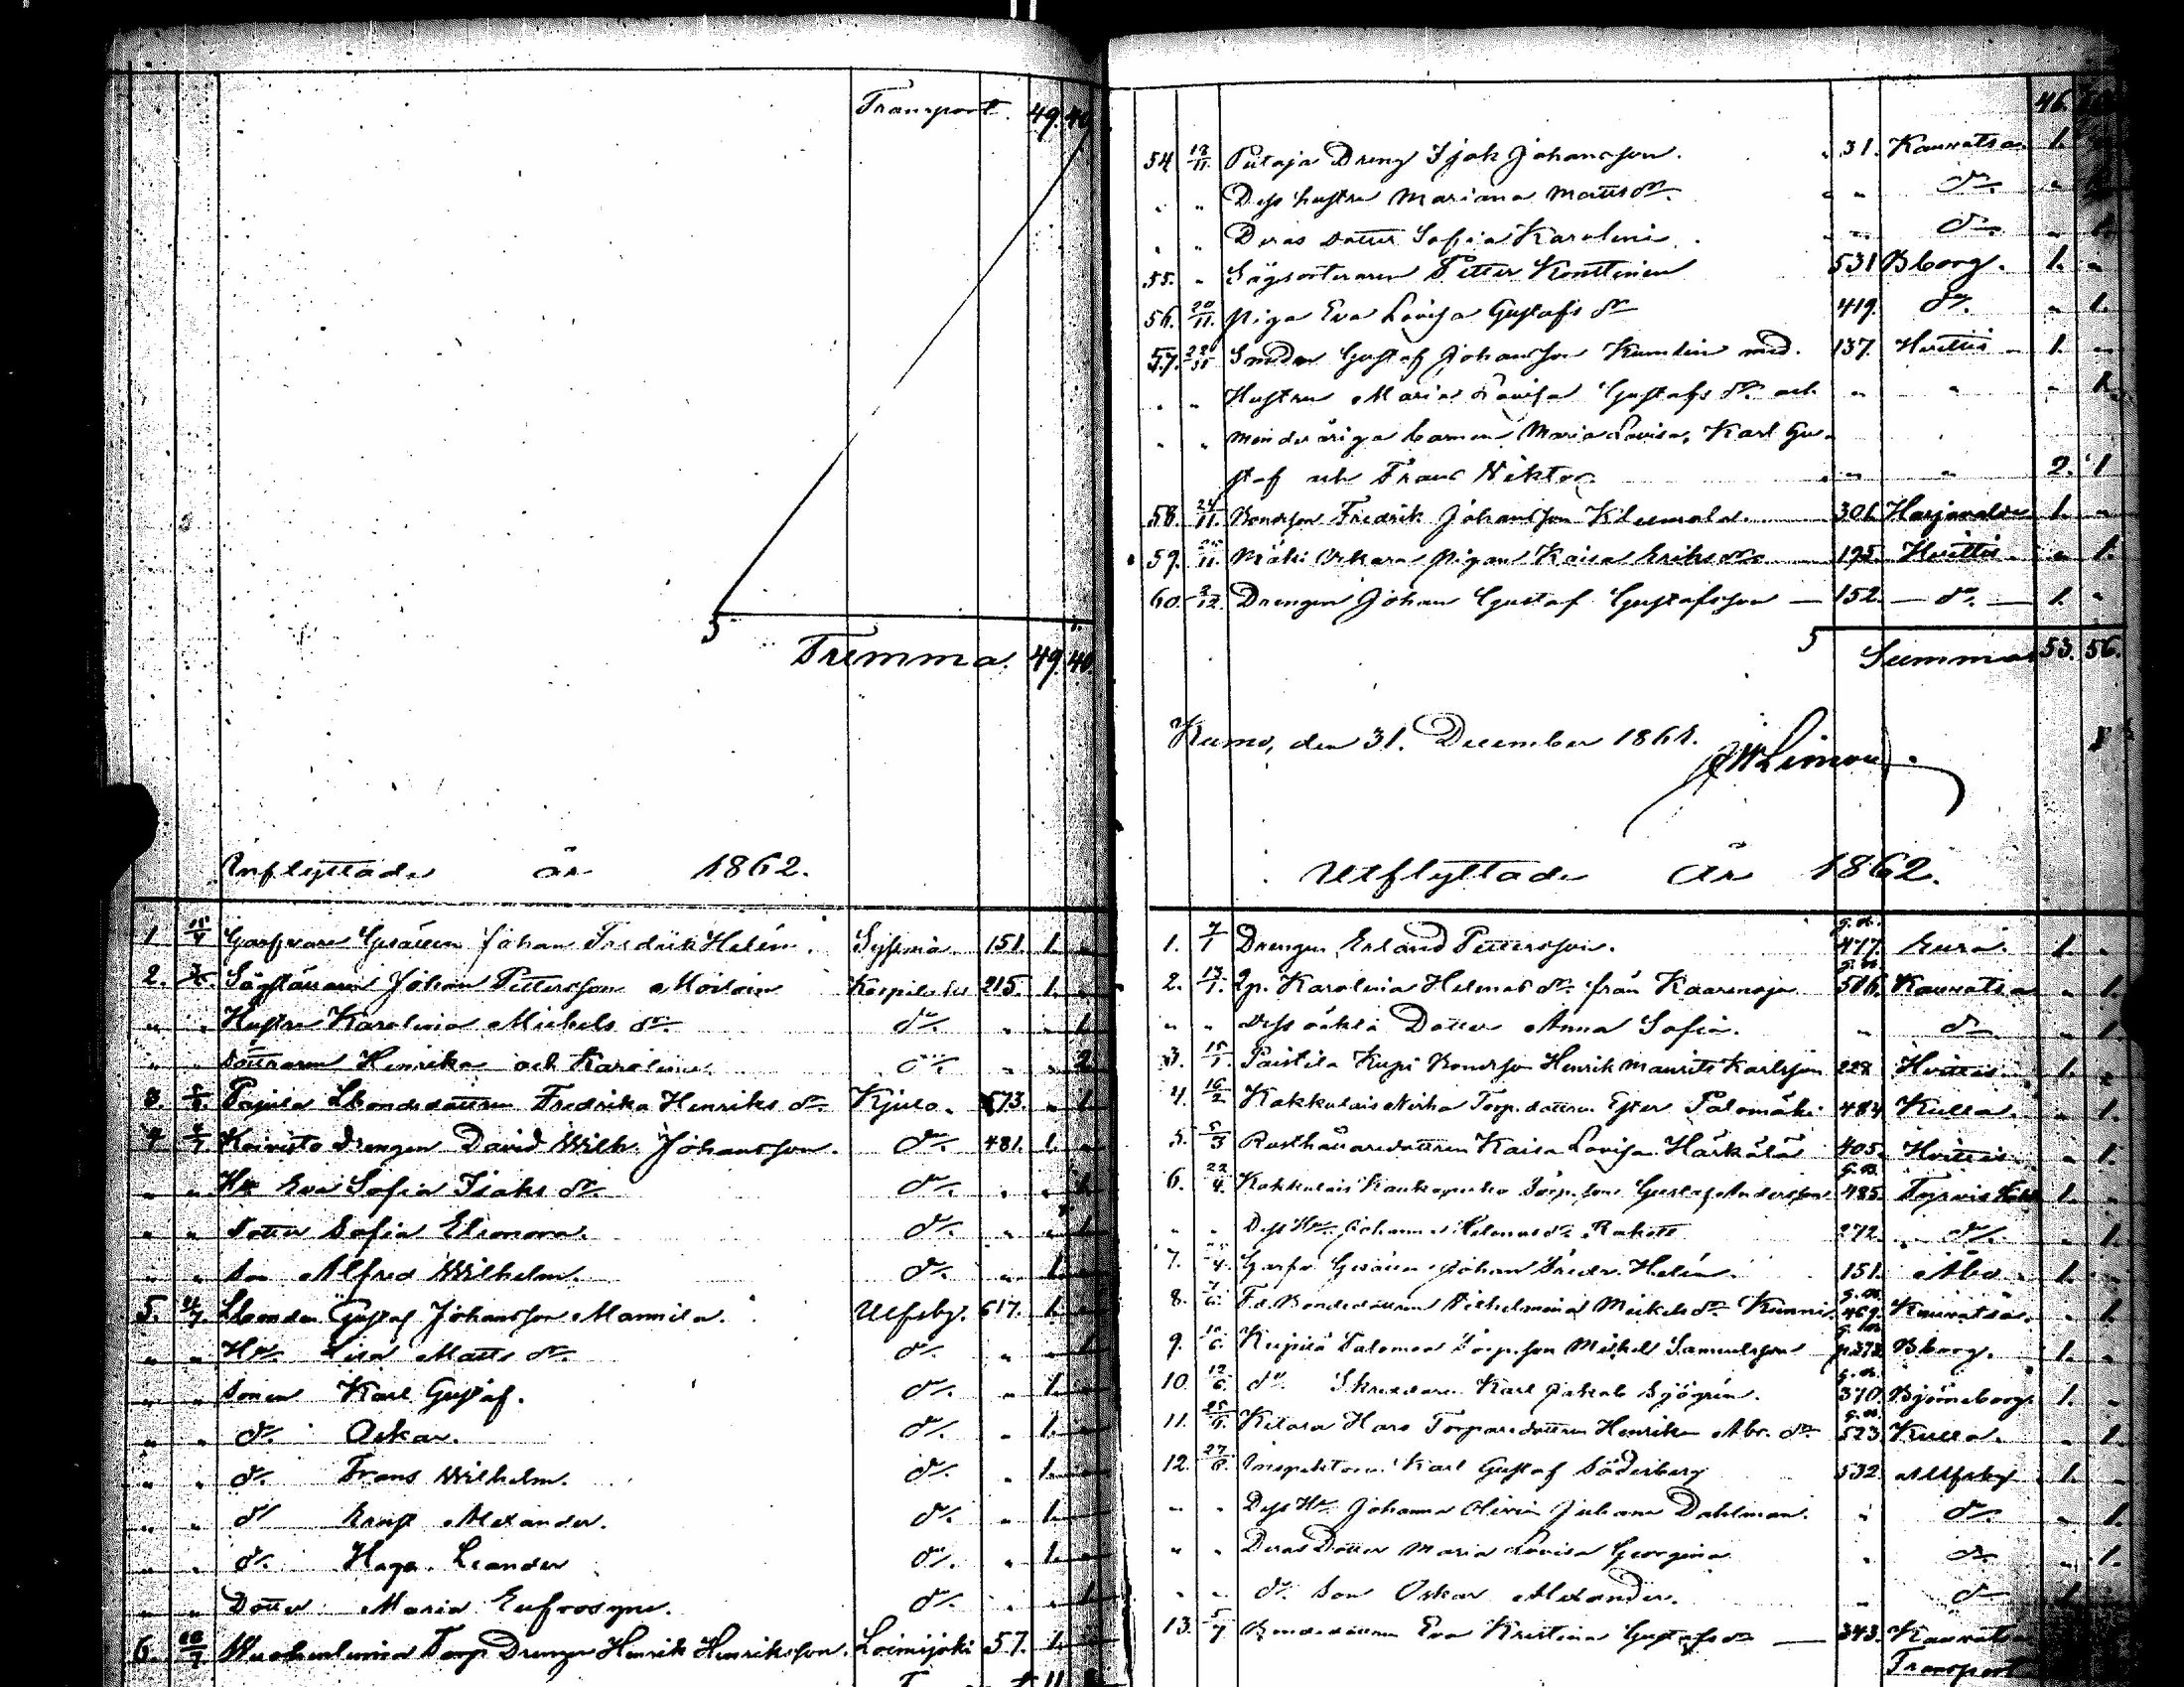 Transport. 49. 40
Summa. 49. 40.
Inflyttade år 1862.
1 15/4 Garfvare Gesällen Johan Fredrik Helén. Syssmä 151. 1. "
2. Johan Pettersson Moilain 215. 1. "
" " Hustru Karolina Michels dr. do. " " 1.
" " döttrarna Henrika och Karolina do. " " 2.
3. Pajula Bondedottren Fredrika Henriks dr. Kjulo. 673. " 1.
4 Koivisto Drengen David Wilh. Johansson. do. 481. 1. "
" " Hu Eva Sofia Isaks dr. do. " " 1.
" " Dotter Sofia Eleonora. do. " " 1.
" " Son Alfred Wilhelm. do. " 1. "
5. Bonden Gustaf Johansson Mannila. Ulfsby. 617. 1. "
" " Hu. Lisa Matts dr. do. " " 1
" " Sonen Karl Gustaf. do. " 1. "
" " do. Oskar. do. " 1. "
" " do. Frans Wilhelm. do. " 1. "
" " do Ernst Alexander. do. " 1. "
" " do. Hugo Leander do. " 1. "
" " Dotter Maria Eufrosyne. do. " " 1
6. 10/7 Torp Drengen Henrik Henriksson. Loimijoki 57. 1. "
46.
54 18/11. Putaja Dreng Isak Johansson. " 31. Kauvatsa. 1. "
" " Dess hustru Mariana Matts dr. " " do. "
" " Deras dotter Sofia Karolina. " do. " 1.
55. " Petter Konttinen 531 Bborg. 1. "
56. 20/11. Piga Eva Lovisa Gustafs dr 419. do. " 1.
57. 22/11 Smeden Gustaf Johansson Kumlin med. 137. Hvittis 1. "
" " Hustru Maria Lovisa Gustafs dr. och " " " 1.
" " minderåriga barnen Maria Lovisa, Karl Gu-
staf och Frans Wiktor " " 2. 1
58. 24/11. Bondeson Fredrik Johansson Kleemola. 306. Harjavalda 1. "
59. Mäki Orkara pigan Kaisa Eriks dr. 195. Hvittis " 1.
60. 2/12. Drengen Johan Gustaf Gustafsson — 152. — do. — 1. "
Summa 53. 56.
Kumo, den 31. December 1861.
Utflyttade År 1862.
1. 7/1 Drengen Erland Pettersson. 477. Eura. 1. "
2. 13/1. Karolina Helenas dr. från Kaarenoja 506. Kauvatsa " 1.
" " Dess oäkta Dotter Anna Sofia. " do " 1.
3. 15/1. Paistila Bondeson Henrik Maurits Karlsson 228 Hvittis 1. "
4. 16/2 Torp. dottren Ester Palomäki 484 Kulla. " 1.
5. 5/3 Rusthållaredottren Kaisa Lovisa Härkälä 405. Hvittis " 1.
6. 22/4. Kakkulais Torp. son Gustaf Andersson 485. 1. "
" " Dess Hu. Johanna 272. do. " 1.
7. Garfv. Gesällen Johan Fredr. Helén. 151. Åbo. 1. "
8. F.d. Bondedottren Vilhelmina Mickels dr. 469. Kauvatsa. " 1.
9. Torp. son Mickel Samuelsson 372 Bborg. 1. "
10 12/6. do. Skräddaren Karl Jakob Sjögren. 370. Björneborg. 1. "
11. 25/6. Torparedottren Henrika Abr. dr 523. Kulla. " 1.
12. 27/6. Inspektoren Karl Gustaf Söderberg 532. Ulfsby 1. "
" " Dess Hu. Johanna Olivia Juliana Dahlman. " do. " 1.
" " Deras Dotter Maria Lovisa Georgina " do. " 1.
" " do. Son Oskar Alexander. " do 1
13. 5/7 Bondedottren Eva Kristina Gustafs dr — 343. Kauvatsa
Transport